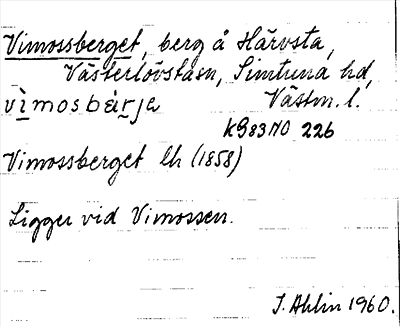 Vimossberget, berg å Härvsta,
Västerlövstasn, Simtuna hd,
vìmosbärja Västm. l.
KG83NO 226
Vimossberget lh (1858)
Ligger vid Vimossen.
I. Ahlin 1960.